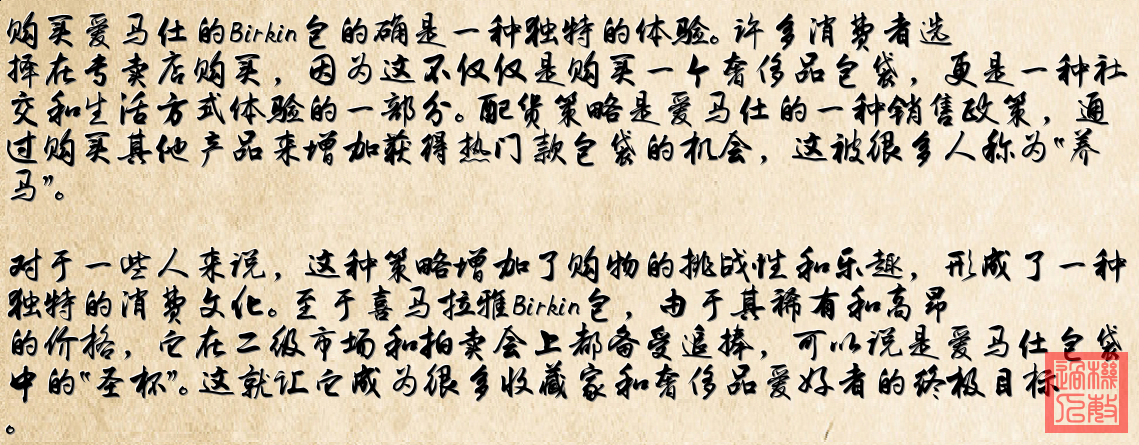 购买爱马仕的Birkin包的确是一种独特的体验。许多消费者选
择在专卖店购买，因为这不仅仅是购买一个奢侈品包袋，更是一种社
交和生活方式体验的一部分。配货策略是爱马仕的一种销售政策，通
过购买其他产品来增加获得热门款包袋的机会，这被很多人称为“养
马”。
对于一些人来说，这种策略增加了购物的挑战性和乐趣，形成了一种
独特的消费文化。至于喜马拉雅Birkin包，由于其稀有和高昂
的价格，它在二级市场和拍卖会上都备受追捧，可以说是爱马仕包袋
中的“圣杯”。这就让它成为很多收藏家和奢侈品爱好者的终极目标
。